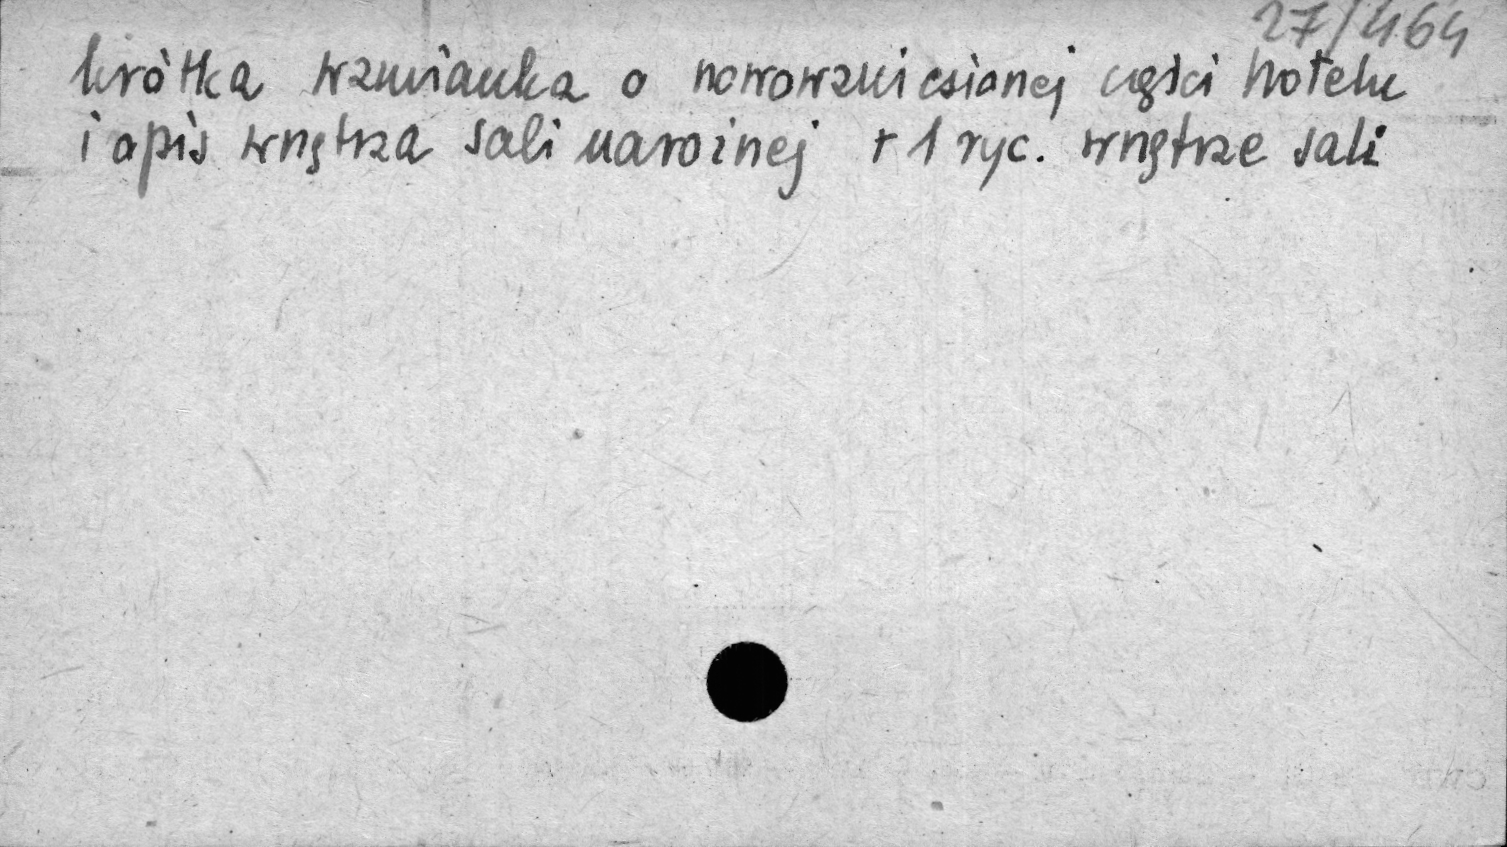 27/464
krótka wzmianka o nowowzniesionej części hotelu
i opis wnętrza sali narożnej + 1 ryc. wnętrze sali